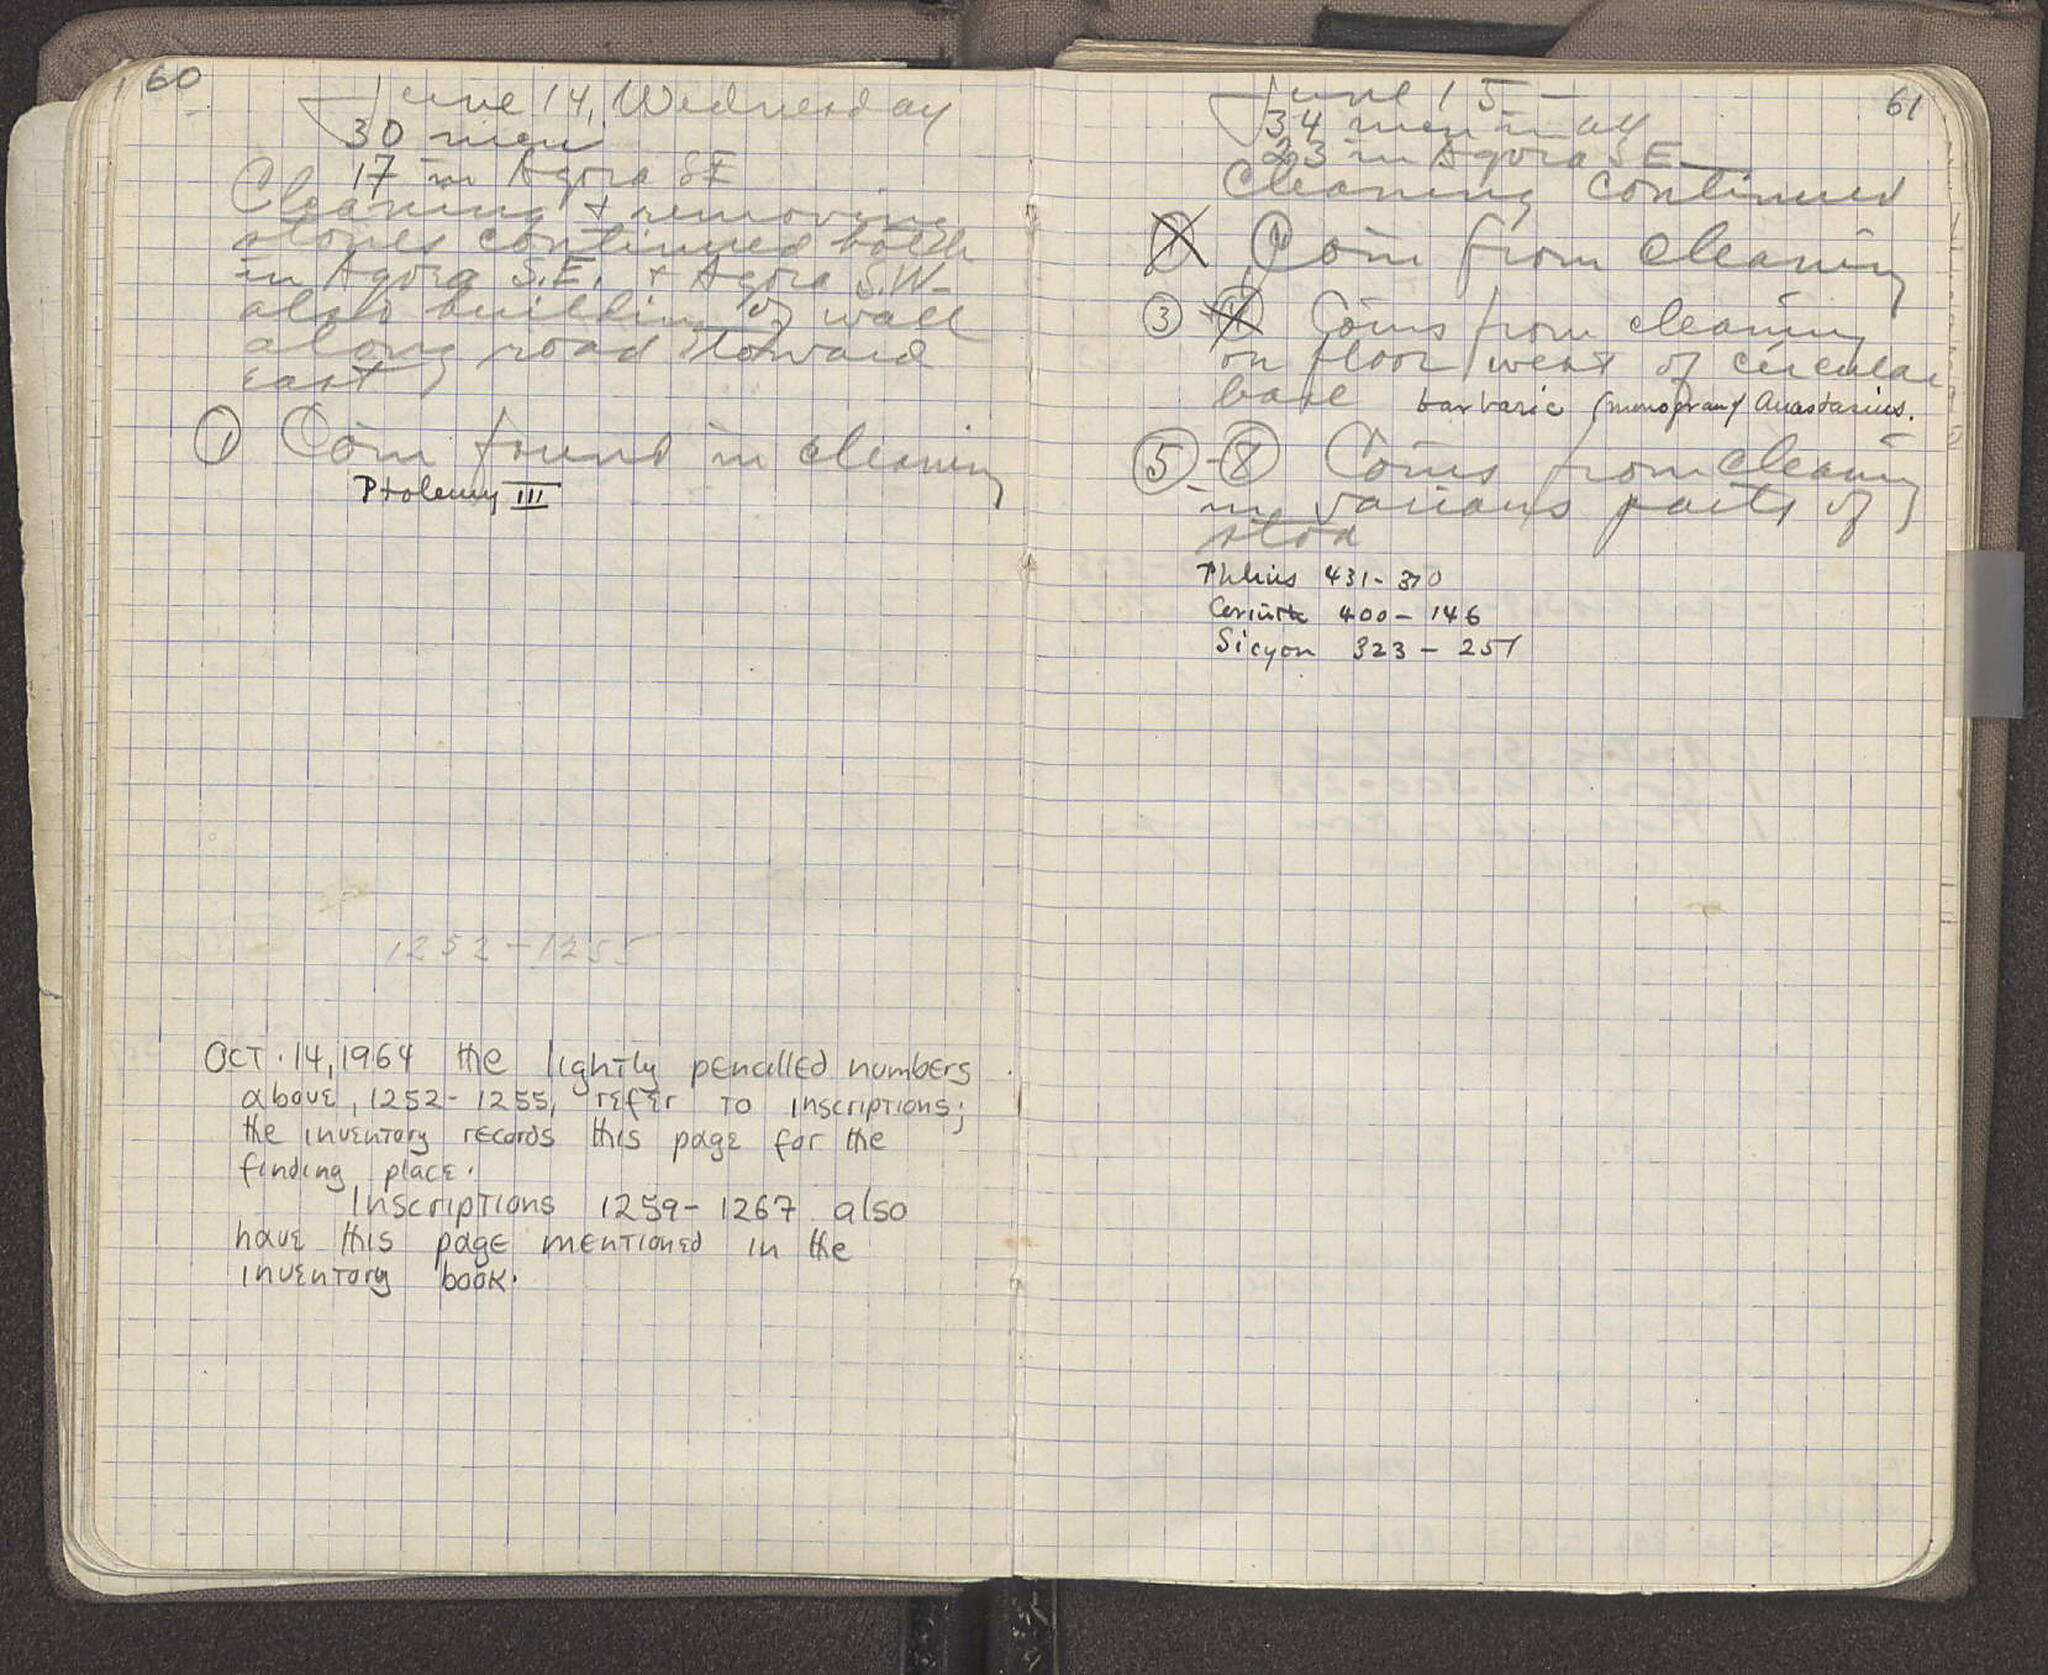 60
June 14, Wednesday
30 men
17 in Agora SE
Cleaning + removing
stones continued both
in Agora S.E. + Agora S.W.
also building of wall
along road toward
east
① Coin found in cleaning
Ptolemy III
1252-1255
Oct. 14, 1964 the lightly pencilled numbers
above, 1252-1255, refer to inscriptions;
the inventory records this page for the
finding place.
Inscriptions 1259-1267 also
have this page mentioned in the
inventory book.
61
June 15 –
34 men in all
23 in Agora SE
Cleaning continued
Coin from cleaning
③ Coins from cleaning
on floor west of circular
base barbaric (monogram) Anastasius.
⑤-⑧ Coins from cleaning
in various parts of
stoa
Phlius 431-370
Corinth 400-146
Sicyon 323-251